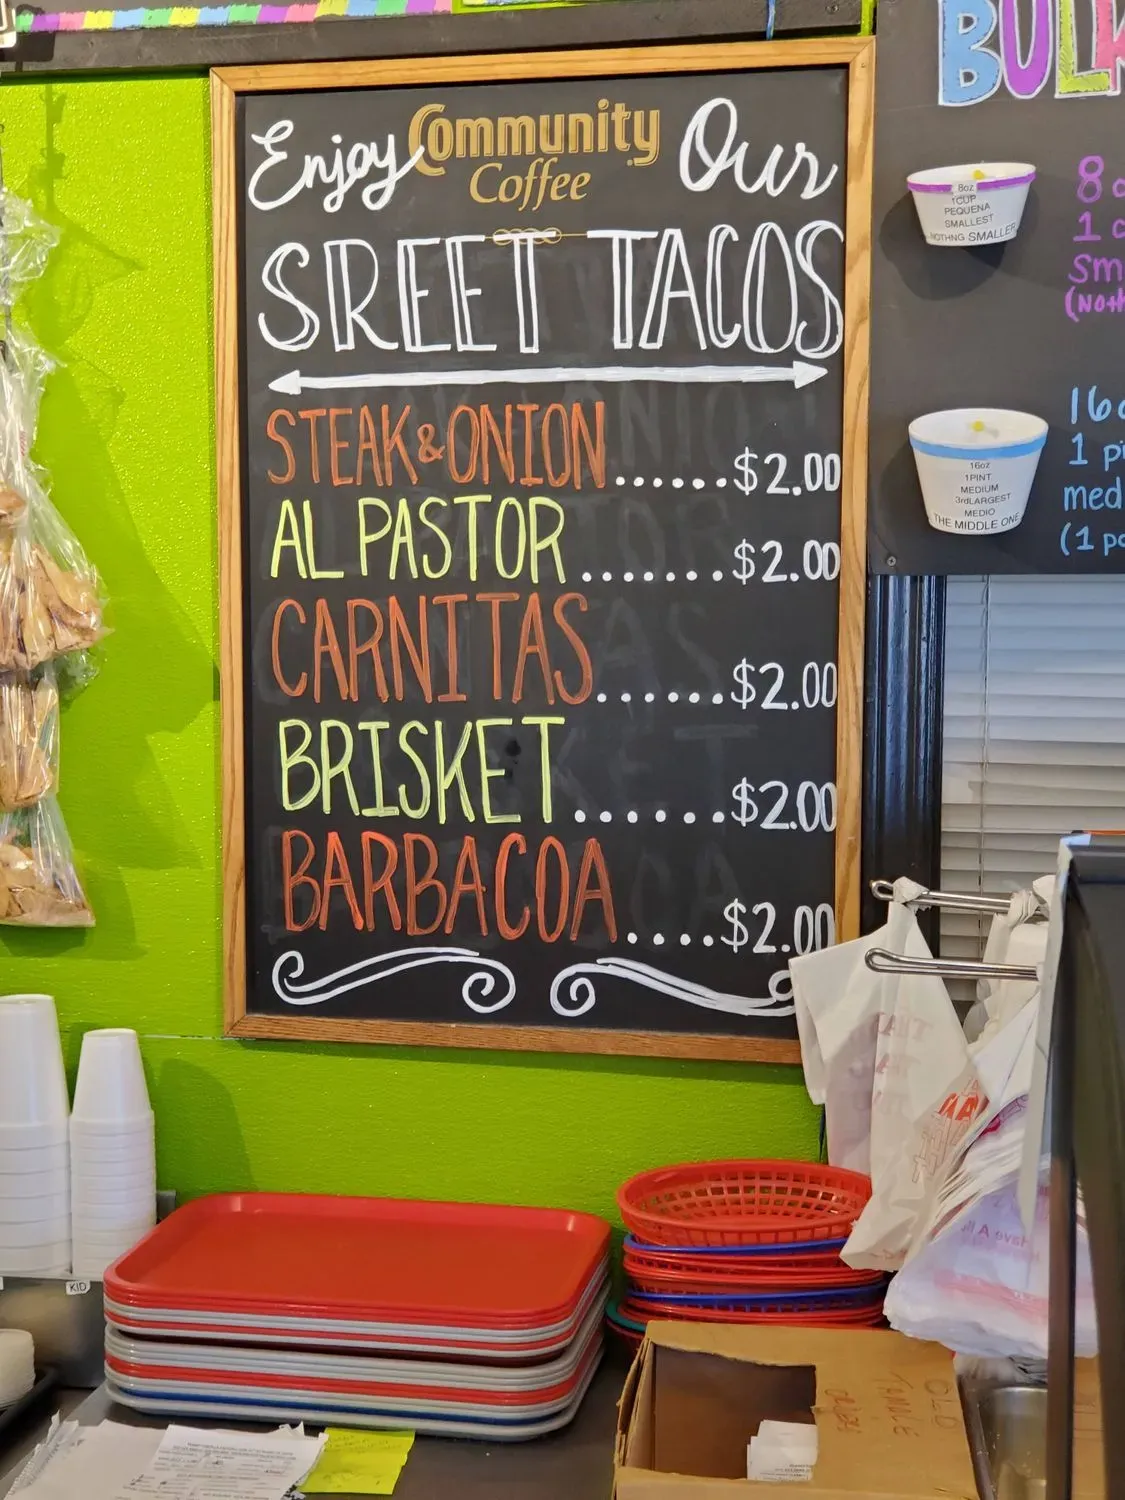 Enjoy Community Coffee Our
SREET TACOS
STEAK & ONION......$2.00
AL PASTOR.......$2.00
CARNITAS......$2.00
BRISKET......$2.00
BARBACOA....$2.00
BULK
8oz
1CUP
PEQUENA
SMALLEST
NOTHNG SMALLER
8
1
sm
16
1
med
(1
16oz
1PINT
MEDIUM
3rdLARGEST
MEDIO
THE MIDDLE ONE
KID
OLD
TAMALE